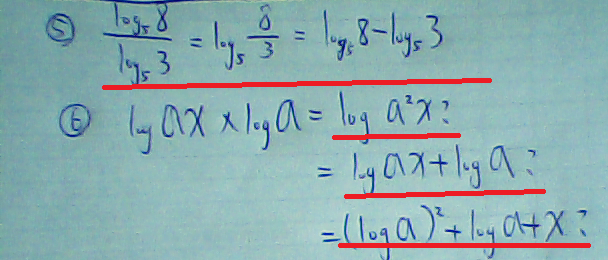 ⑤ log₅8/log₅3 = log₅ 8/3 = log₅8-log₅3
⑥ log ax × log a = log a²x?
= log ax + log a?
= (log a)² + log a + x?